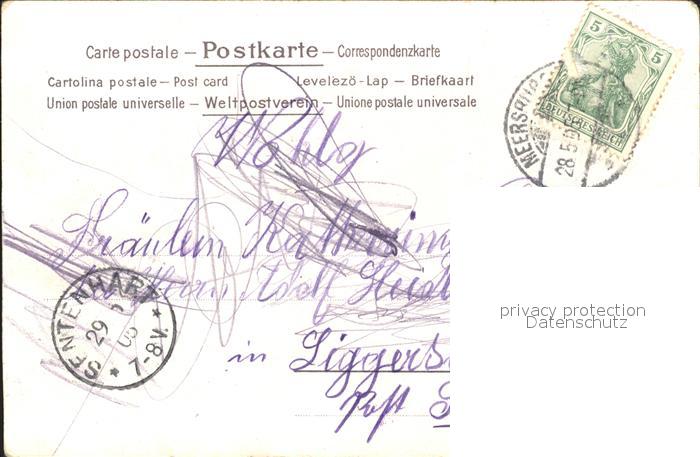 Carte postale — Postkarte — Correspondenzkarte
Cartolina postale — Post card Levelező-Lap — Briefkaart
Union postale universelle — Weltpostverein — Unione postale universale
5 5
DEUTSCHES REICH
MEERSBURG
28.5
Wohlg
Fräulein Katharin
Herrn Adolf
SENTENHART
29 5 08
* 7-8 V. *
in Liggers
Post S
privacy protection
Datenschutz